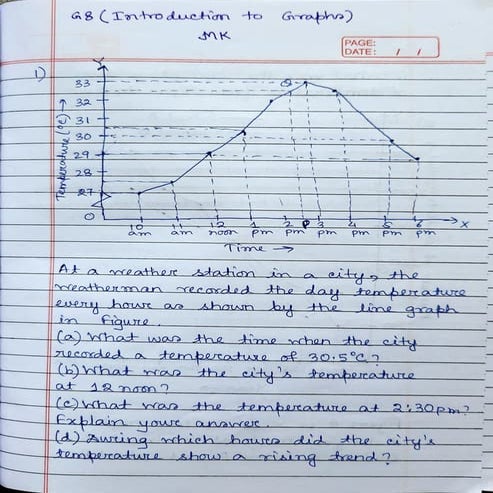 G8 (Introduction to Graphs)
MK
PAGE:
DATE: / /
1)
Y
33
32
31
30
29
28
27
0
Temperature (°C) →
Q
10 am
11 am
12 noon
1 pm
2 pm
P
3 pm
4 pm
5 pm
6 pm
X
Time →
At a weather station in a city, the
weatherman recorded the day temperature
every hour as shown by the line graph
in figure.
(a) What was the time when the city
recorded a temperature of 30.5°C?
(b) What was the city's temperature
at 12 noon?
(c) What was the temperature at 2:30pm?
Explain your answer.
(d) During which hours did the city's
temperature show a rising trend?